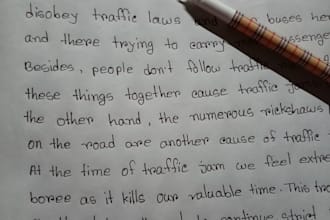 disobey traffic laws buses he
and there trying to carry
Besides, people don't follow
these things together cause traffic
the other hand, the numerous rickshaws
on the road are another cause of traffic
At the time of traffic jam we feel
boree as it kills our valuable time. This